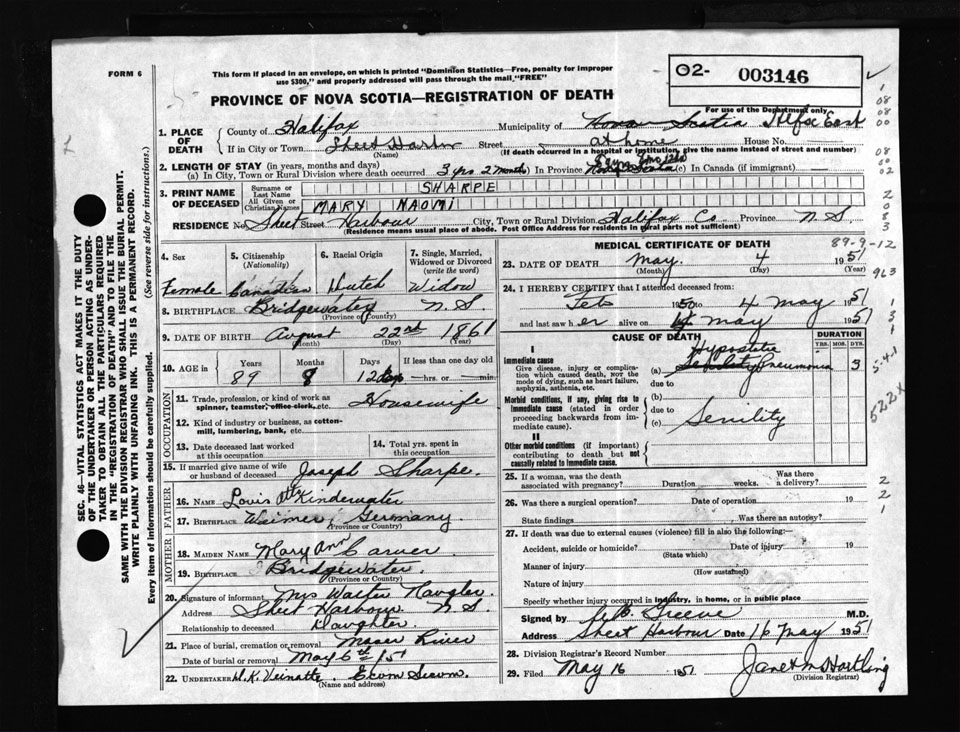 FORM 6
This form if placed in an envelope, on which is printed "Dominion Statistics—Free, penalty for improper
use $300," and properly addressed will pass through the mail, "FREE"
02- 003146
PROVINCE OF NOVA SCOTIA—REGISTRATION OF DEATH
For use of the Department only
1. PLACE OF DEATH
County of Halifax Municipality of Nova Scotia Hlfx East
If in City or Town Sheet Harbr Street at home House No. —
(Name) (If death occurred in a hospital or institution, give the name instead of street and number)
2. LENGTH OF STAY (in years, months and days)
(a) In City, Town or Rural Division where death occurred 3 yrs 2 months In Province Nova Scotia (c) In Canada (if immigrant) —
3. PRINT NAME OF DECEASED
Surname or Last Name SHARPE
All Given or Christian Names MARY NAOMI
RESIDENCE No. Sheet Street Harbour City, Town or Rural Division Halifax Co Province N. S
(Residence means usual place of abode. Post Office Address for residents in rural parts not sufficient)
4. Sex 5. Citizenship (Nationality) 6. Racial Origin 7. Single, Married, Widowed or Divorced (write the word)
Female Canadian Dutch Widow
8. BIRTHPLACE Bridgewater N. S
(Province or Country)
9. DATE OF BIRTH August 22nd 1861
(Month) (Day) (Year)
10. AGE in Years Months Days If less than one day old
89 8 12 days —hrs. or —min.
OCCUPATION
11. Trade, profession, or kind of work as spinner, teamster, office clerk, etc. Housewife
12. Kind of industry or business, as cotton-mill, lumbering, bank, etc.
13. Date deceased last worked at this occupation
14. Total yrs. spent in this occupation
15. If married give name of wife or husband of deceased Joseph Sharpe.
FATHER
16. NAME Louis Kinderwater
17. BIRTHPLACE Waimer, Germany
(Province or Country)
MOTHER
18. MAIDEN NAME Mary Ann Carver
19. BIRTHPLACE Bridgewater.
(Province or Country)
20. Signature of informant Mrs Walter Naugler
Address Sheet Harbour N. S
Relationship to deceased Daughter
21. Place of burial, cremation or removal Moser River
Date of burial or removal May 6th 1951
22. UNDERTAKER W. K. Veinotte Ecum Secum.
(Name and address)
MEDICAL CERTIFICATE OF DEATH
89-9-12
23. DATE OF DEATH May 4 1951
(Month) (Day) (Year)
24. I HEREBY CERTIFY that I attended deceased from:
Feb 1950 to 4 May 1951
and last saw her alive on 4 May 1951
CAUSE OF DEATH DURATION
YRS. MOS. DYS.
I
Immediate cause
Give disease, injury or complication which caused death, not the mode of dying, such as heart failure, asphyxia, asthenia, etc.
(a) Hypostatic Pneumonia 3
due to
Morbid conditions, if any, giving rise to immediate cause (stated in order proceeding backwards from immediate cause).
(b)
due to
(c) Senility
II
Other morbid conditions (if important) contributing to death but not causally related to immediate cause.
25. If a woman, was the death associated with pregnancy? Duration weeks. Was there a delivery?
26. Was there a surgical operation? Date of operation 19
State findings Was there an autopsy?
27. If death was due to external causes (violence) fill in also the following:—
Accident, suicide or homicide? Date of injury 19
(State which)
Manner of injury
(How sustained)
Nature of injury
Specify whether injury occurred in industry, in home, or in public place
Signed by Greene M.D.
Address Sheet Harbour Date 16 May 1951
28. Division Registrar's Record Number
29. Filed May 16 1951 Janet M Hartling
(Division Registrar)
SEC. 46—VITAL STATISTICS ACT MAKES IT THE DUTY
OF THE UNDERTAKER OR PERSON ACTING AS UNDER-
TAKER TO OBTAIN ALL THE PARTICULARS REQUIRED
IN THE "REGISTRATION OF DEATH" AND TO FILE THE
SAME WITH THE DIVISION REGISTRAR WHO SHALL ISSUE THE BURIAL PERMIT.
WRITE PLAINLY WITH UNFADING INK. THIS IS A PERMANENT RECORD.
Every item of information should be carefully supplied. (See reverse side for instructions.)